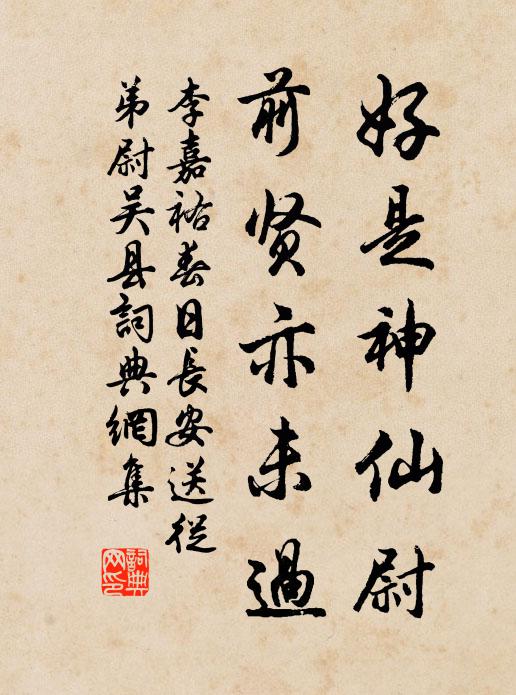 好是神仙尉
前贤亦未過
李嘉祐春日長安送從
弟尉吴县詞典網集
詞典
网印